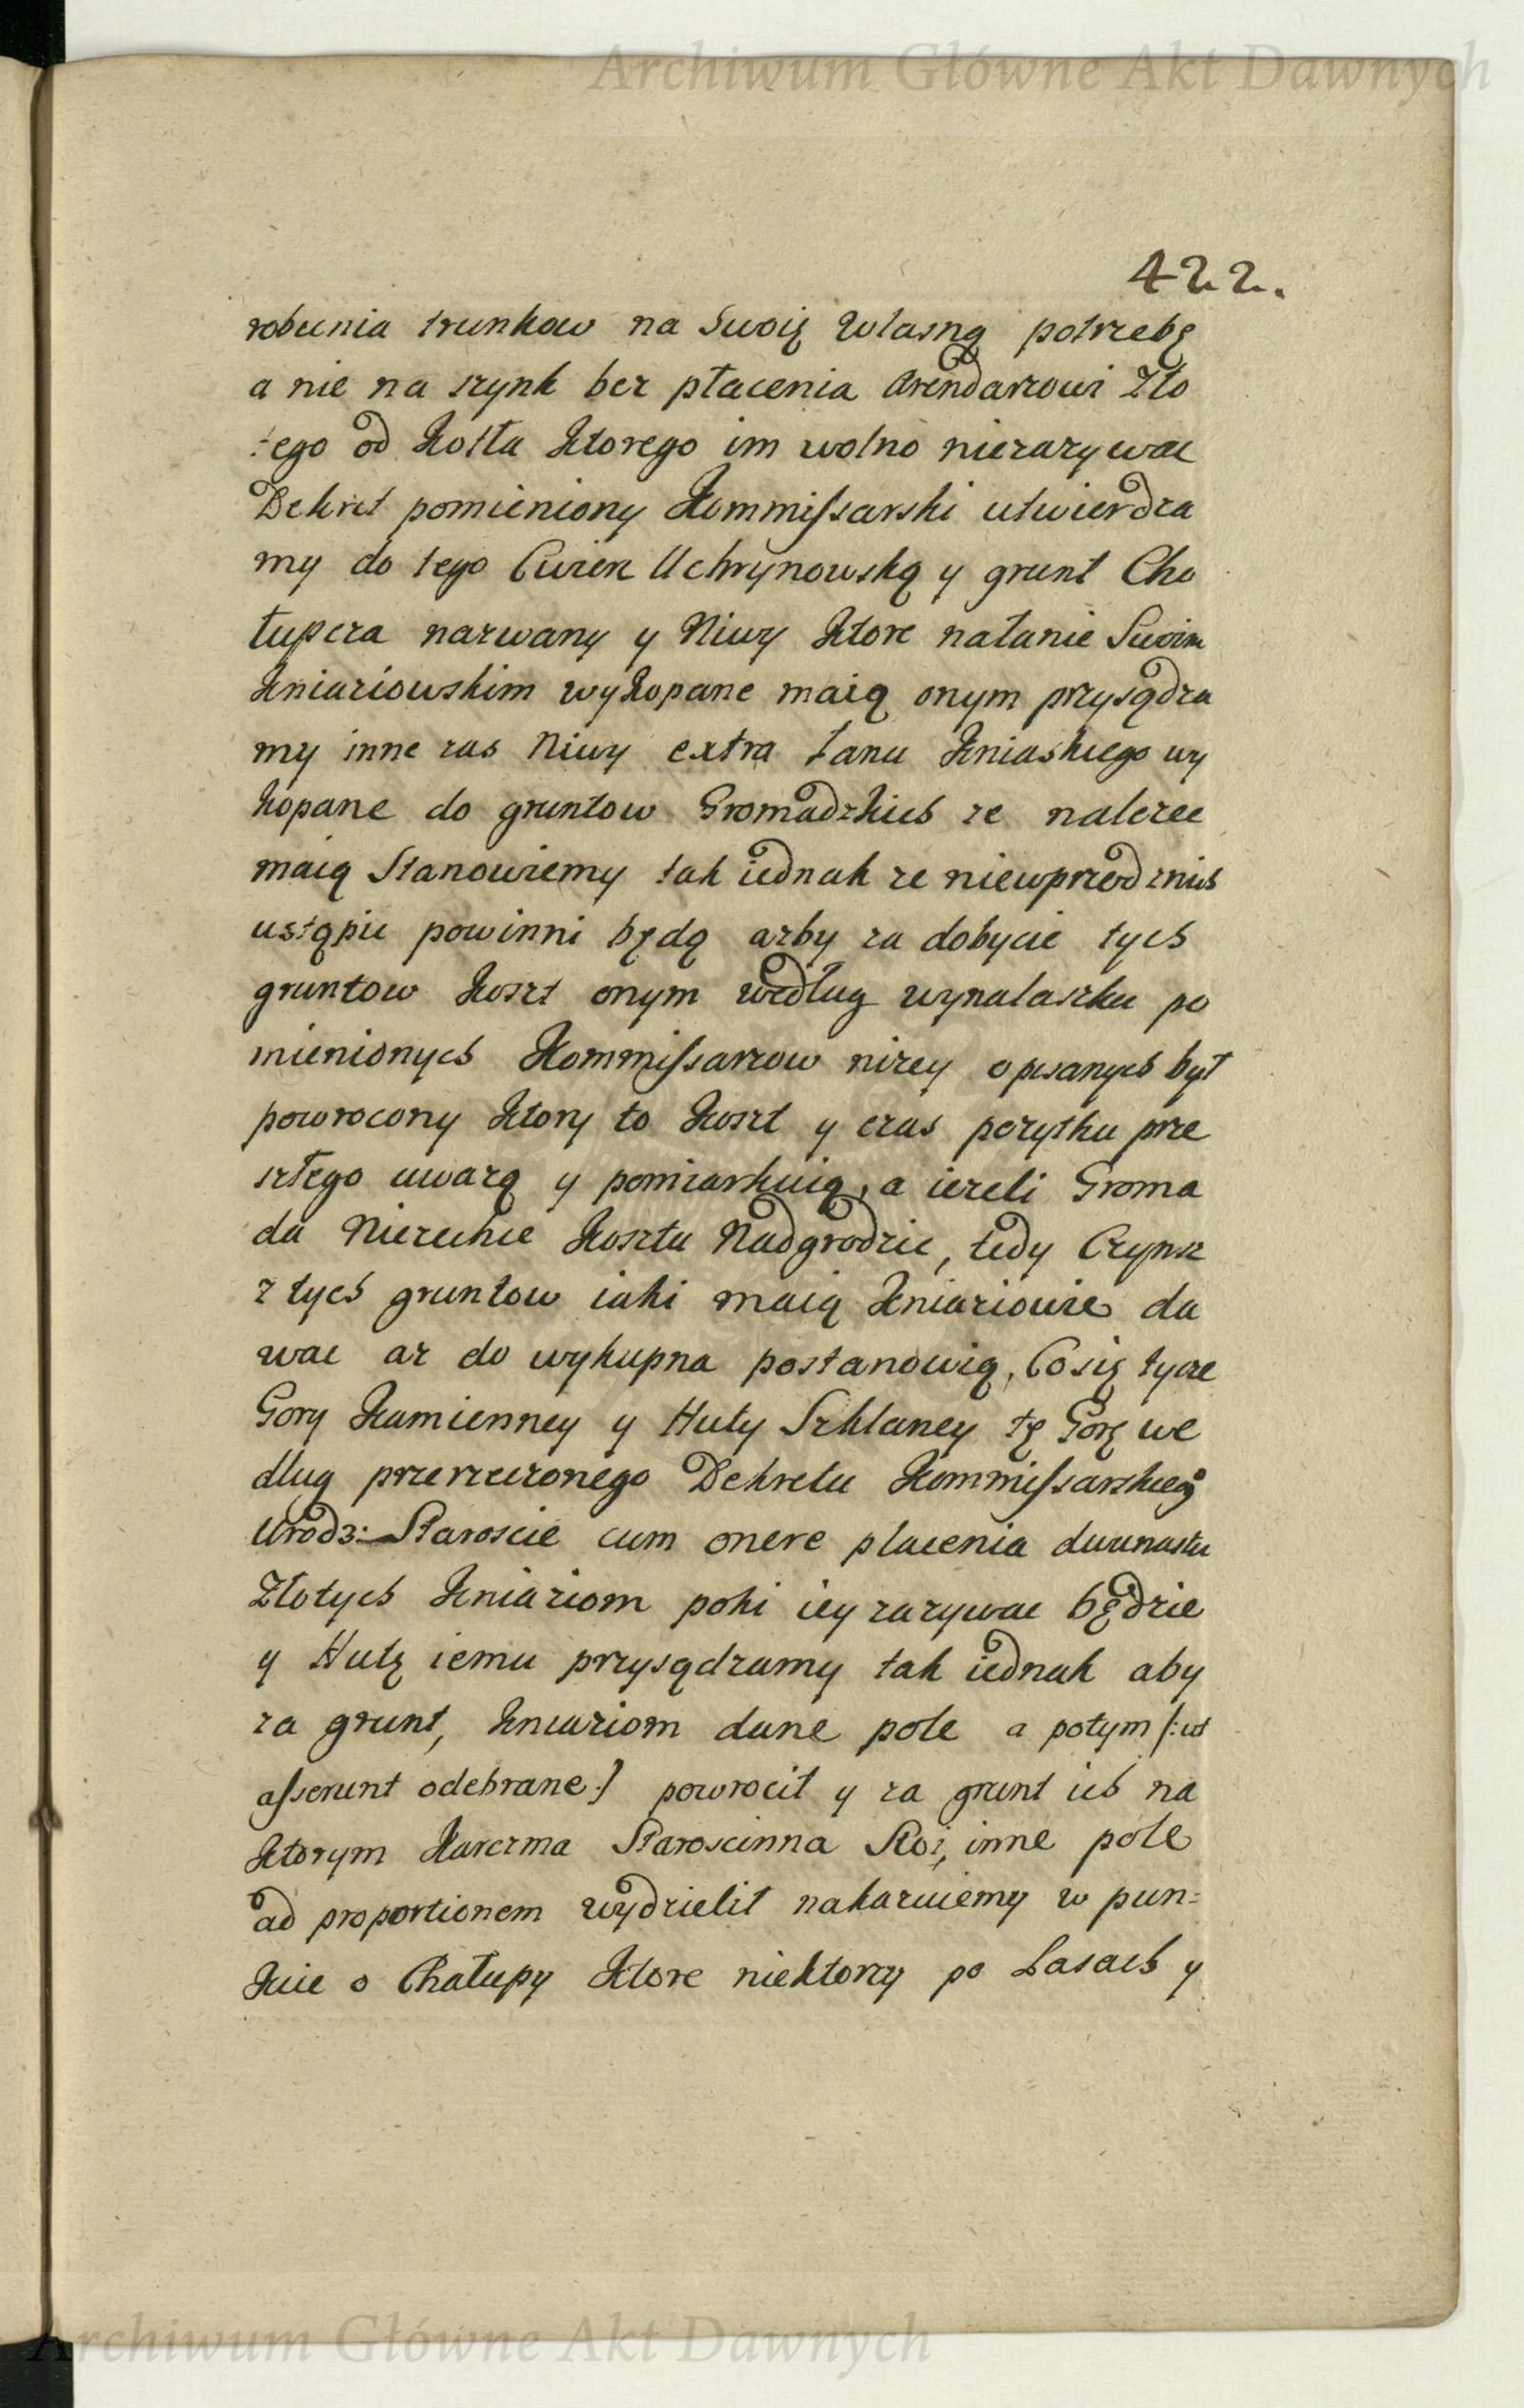 Archiwum Główne Akt Dawnych
422.
robienia trunkow na Swoię Własną potrzebę
a nie na szynk bez płacenia Arendarzowi Zło
tego od Kotła Ktorego im wolno niezazywac
Dekret pomieniony Kommissarski utwierdza
my do tego Cwierc Uchrynowską y grunt Cho
łupcza nazwany y Niwy Ktore nałanie Swoim
Kniaziowskim wykopane maią onym przysądza
my inne zas Niwy extra Łanu Kniaskiego wy
kopane do gruntow Gromadzkich ze nalezec
maią Stanowiemy tak iednak ze niewprzod znich
ustąpic powinni będą azby za dobycie tych
gruntow Koszt onym według wynalasku po
mienionych Kommissarzow nizey opisanych był
powrocony Ktory to Koszt y czas pozytku prze
szłego uwazą y pomiarkuią, a iezeli Groma
da Niezechce Kosztu Nadgrodzic, tedy Czynsz
z tych gruntow iaki maią Kniaziowie da
wac az do wykupna postanowią, Co się tycze
Gory Kamienney y Huty Szklaney tę Gorę we
dług przerzeczonego Dekretu Kommissarskiego
Urodz: Staroscie cum onere płacenia dwunastu
Złotych Kniaziom poki iey zazywac będzie
y Hutę iemu przysądzamy tak iednak aby
za grunt, Kniaziom dane pole a potym /: ut
asserunt odebrane :/ powrocił y za grunt ich na
Ktorym Karczma Staroscinna Stoi, inne pole
ad proportionem wydzielił nakazuiemy w pun=
kcie o Chałupy Ktore niektorzy po Lasach y
Archiwum Główne Akt Dawnych